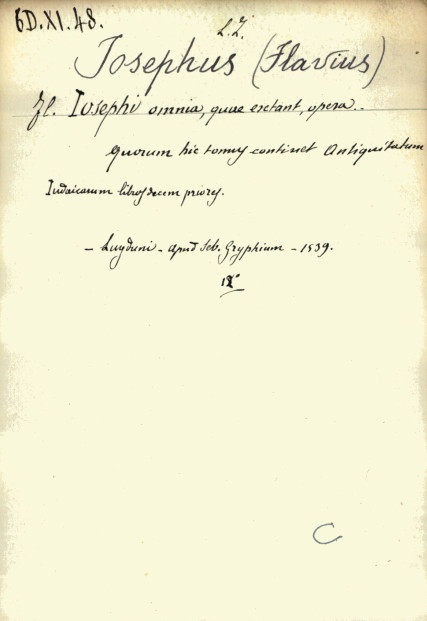 6D.XI.48.
L.Z.
Josephus (Flavius)
Fl. Iosephi omnia, quae exstant, opera.
Quorum hic tomus continet Antiquitatum
Iudaicarum libros decem priores.
- Lugduni - apud Seb. Gryphium - 1539.
12°
C